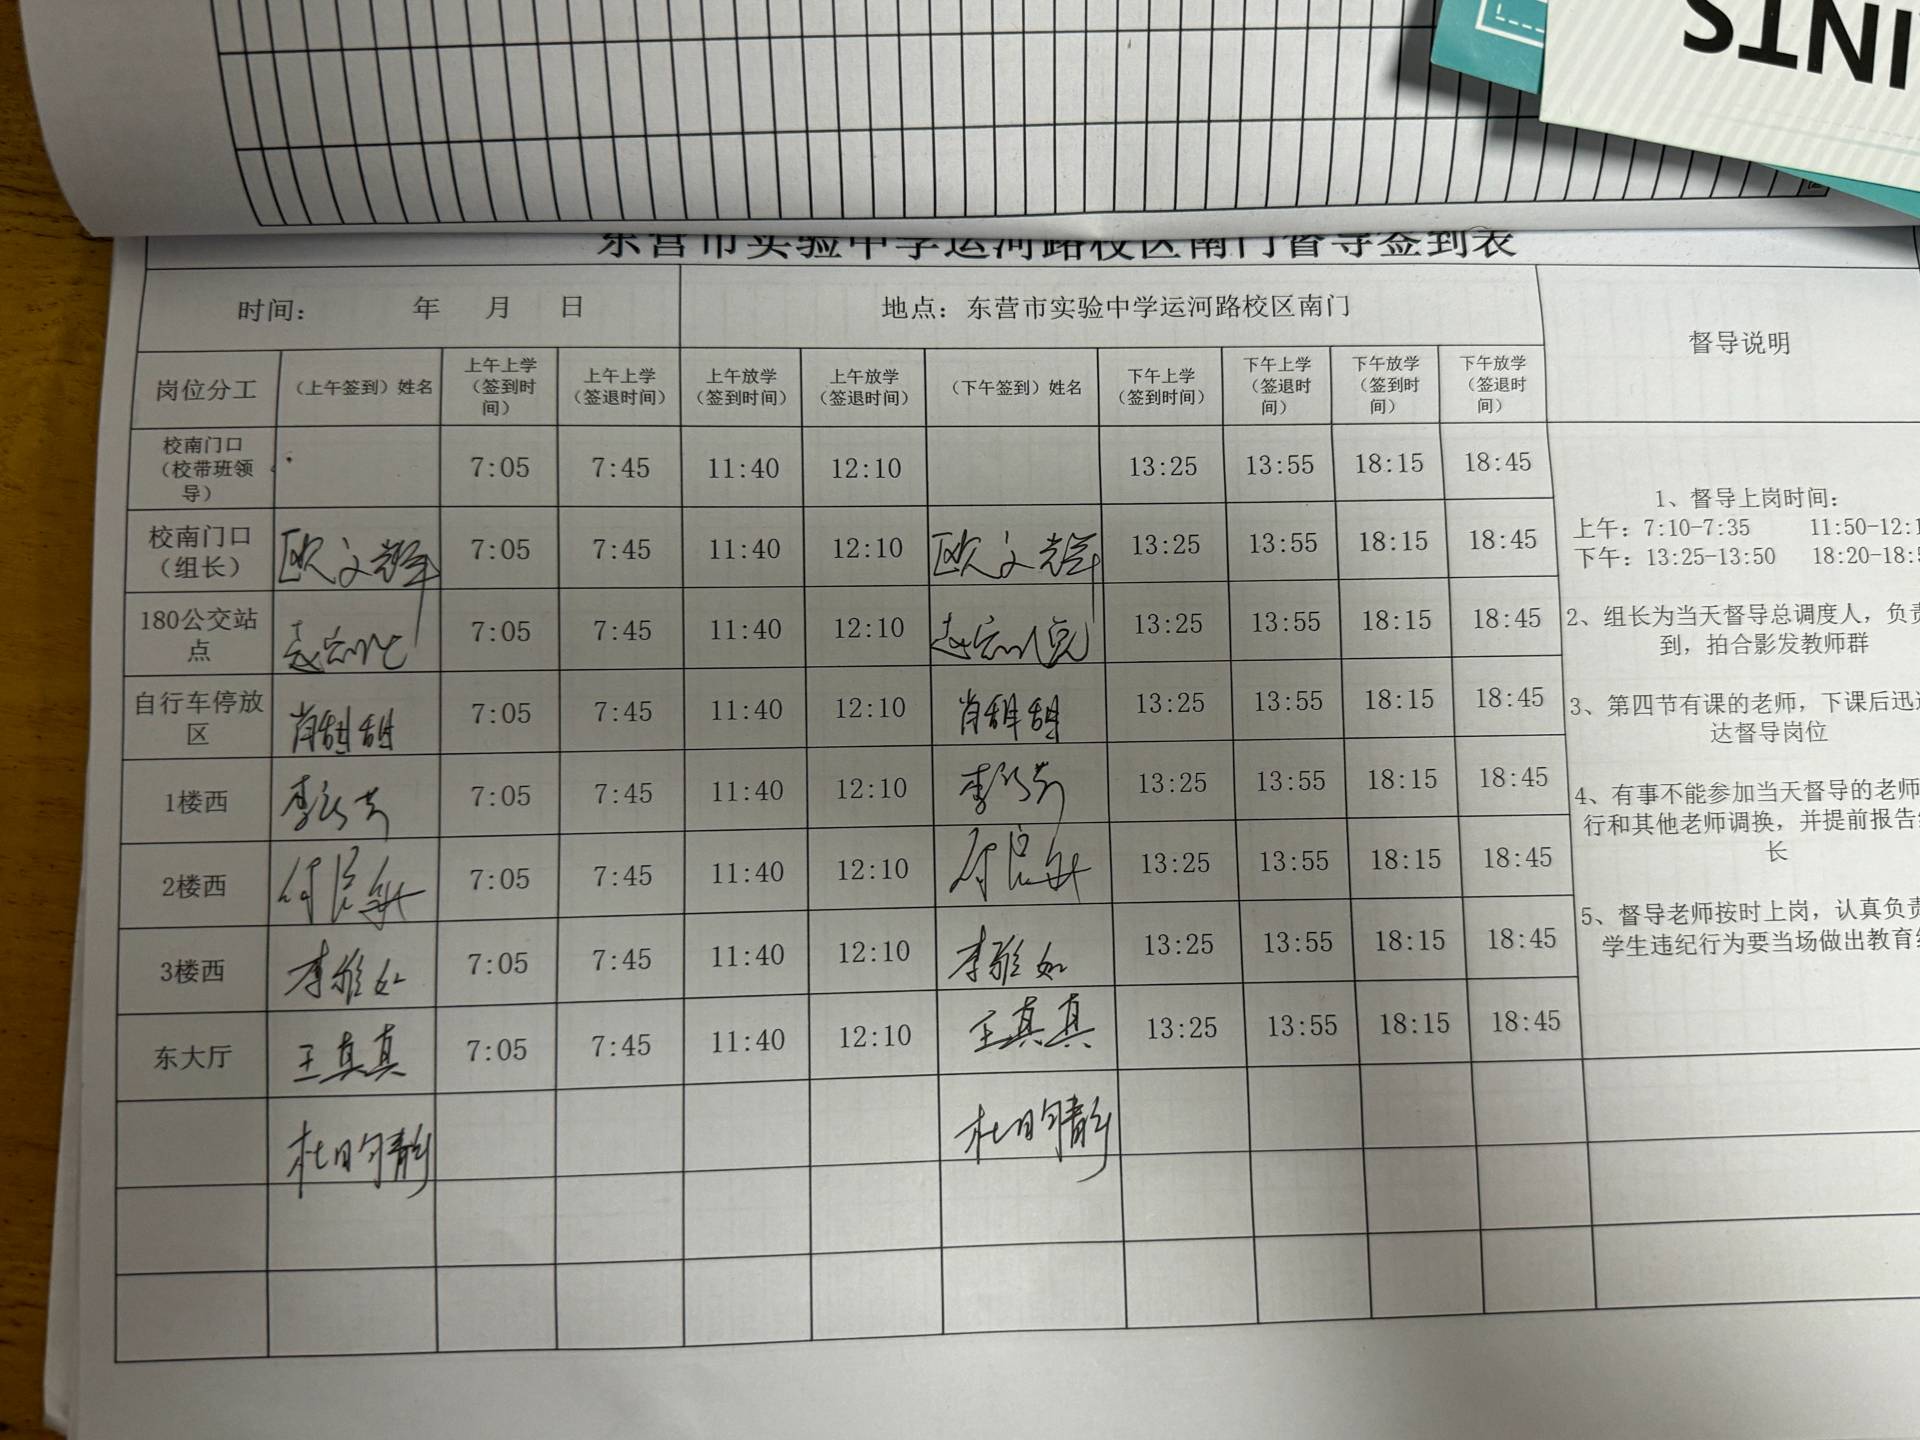 INTS
东营市实验中学运河路校区南门督导签到表
时间： 年 月 日 地点：东营市实验中学运河路校区南门 督导说明
岗位分工 （上午签到）姓名 上午上学（签到时间） 上午上学（签退时间） 上午放学（签到时间） 上午放学（签退时间） （下午签到）姓名 下午上学（签到时间） 下午上学（签退时间） 下午放学（签到时间） 下午放学（签退时间）
校南门口（校带班领导） 7:05 7:45 11:40 12:10 13:25 13:55 18:15 18:45
校南门口（组长） 欧文辉 7:05 7:45 11:40 12:10 欧文辉 13:25 13:55 18:15 18:45
180公交站点 7:05 7:45 11:40 12:10 13:25 13:55 18:15 18:45
自行车停放区 肖甜甜 7:05 7:45 11:40 12:10 肖甜甜 13:25 13:55 18:15 18:45
1楼西 7:05 7:45 11:40 12:10 13:25 13:55 18:15 18:45
2楼西 7:05 7:45 11:40 12:10 13:25 13:55 18:15 18:45
3楼西 李雅如 7:05 7:45 11:40 12:10 李雅如 13:25 13:55 18:15 18:45
东大厅 王真真 7:05 7:45 11:40 12:10 王真真 13:25 13:55 18:15 18:45
1、督导上岗时间：
上午：7:10-7:35 11:50-12:1
下午：13:25-13:50 18:20-18:5
2、组长为当天督导总调度人，负责
到，拍合影发教师群
3、第四节有课的老师，下课后迅速
达督导岗位
4、有事不能参加当天督导的老师
行和其他老师调换，并提前报告组
长
5、督导老师按时上岗，认真负责
学生违纪行为要当场做出教育纟